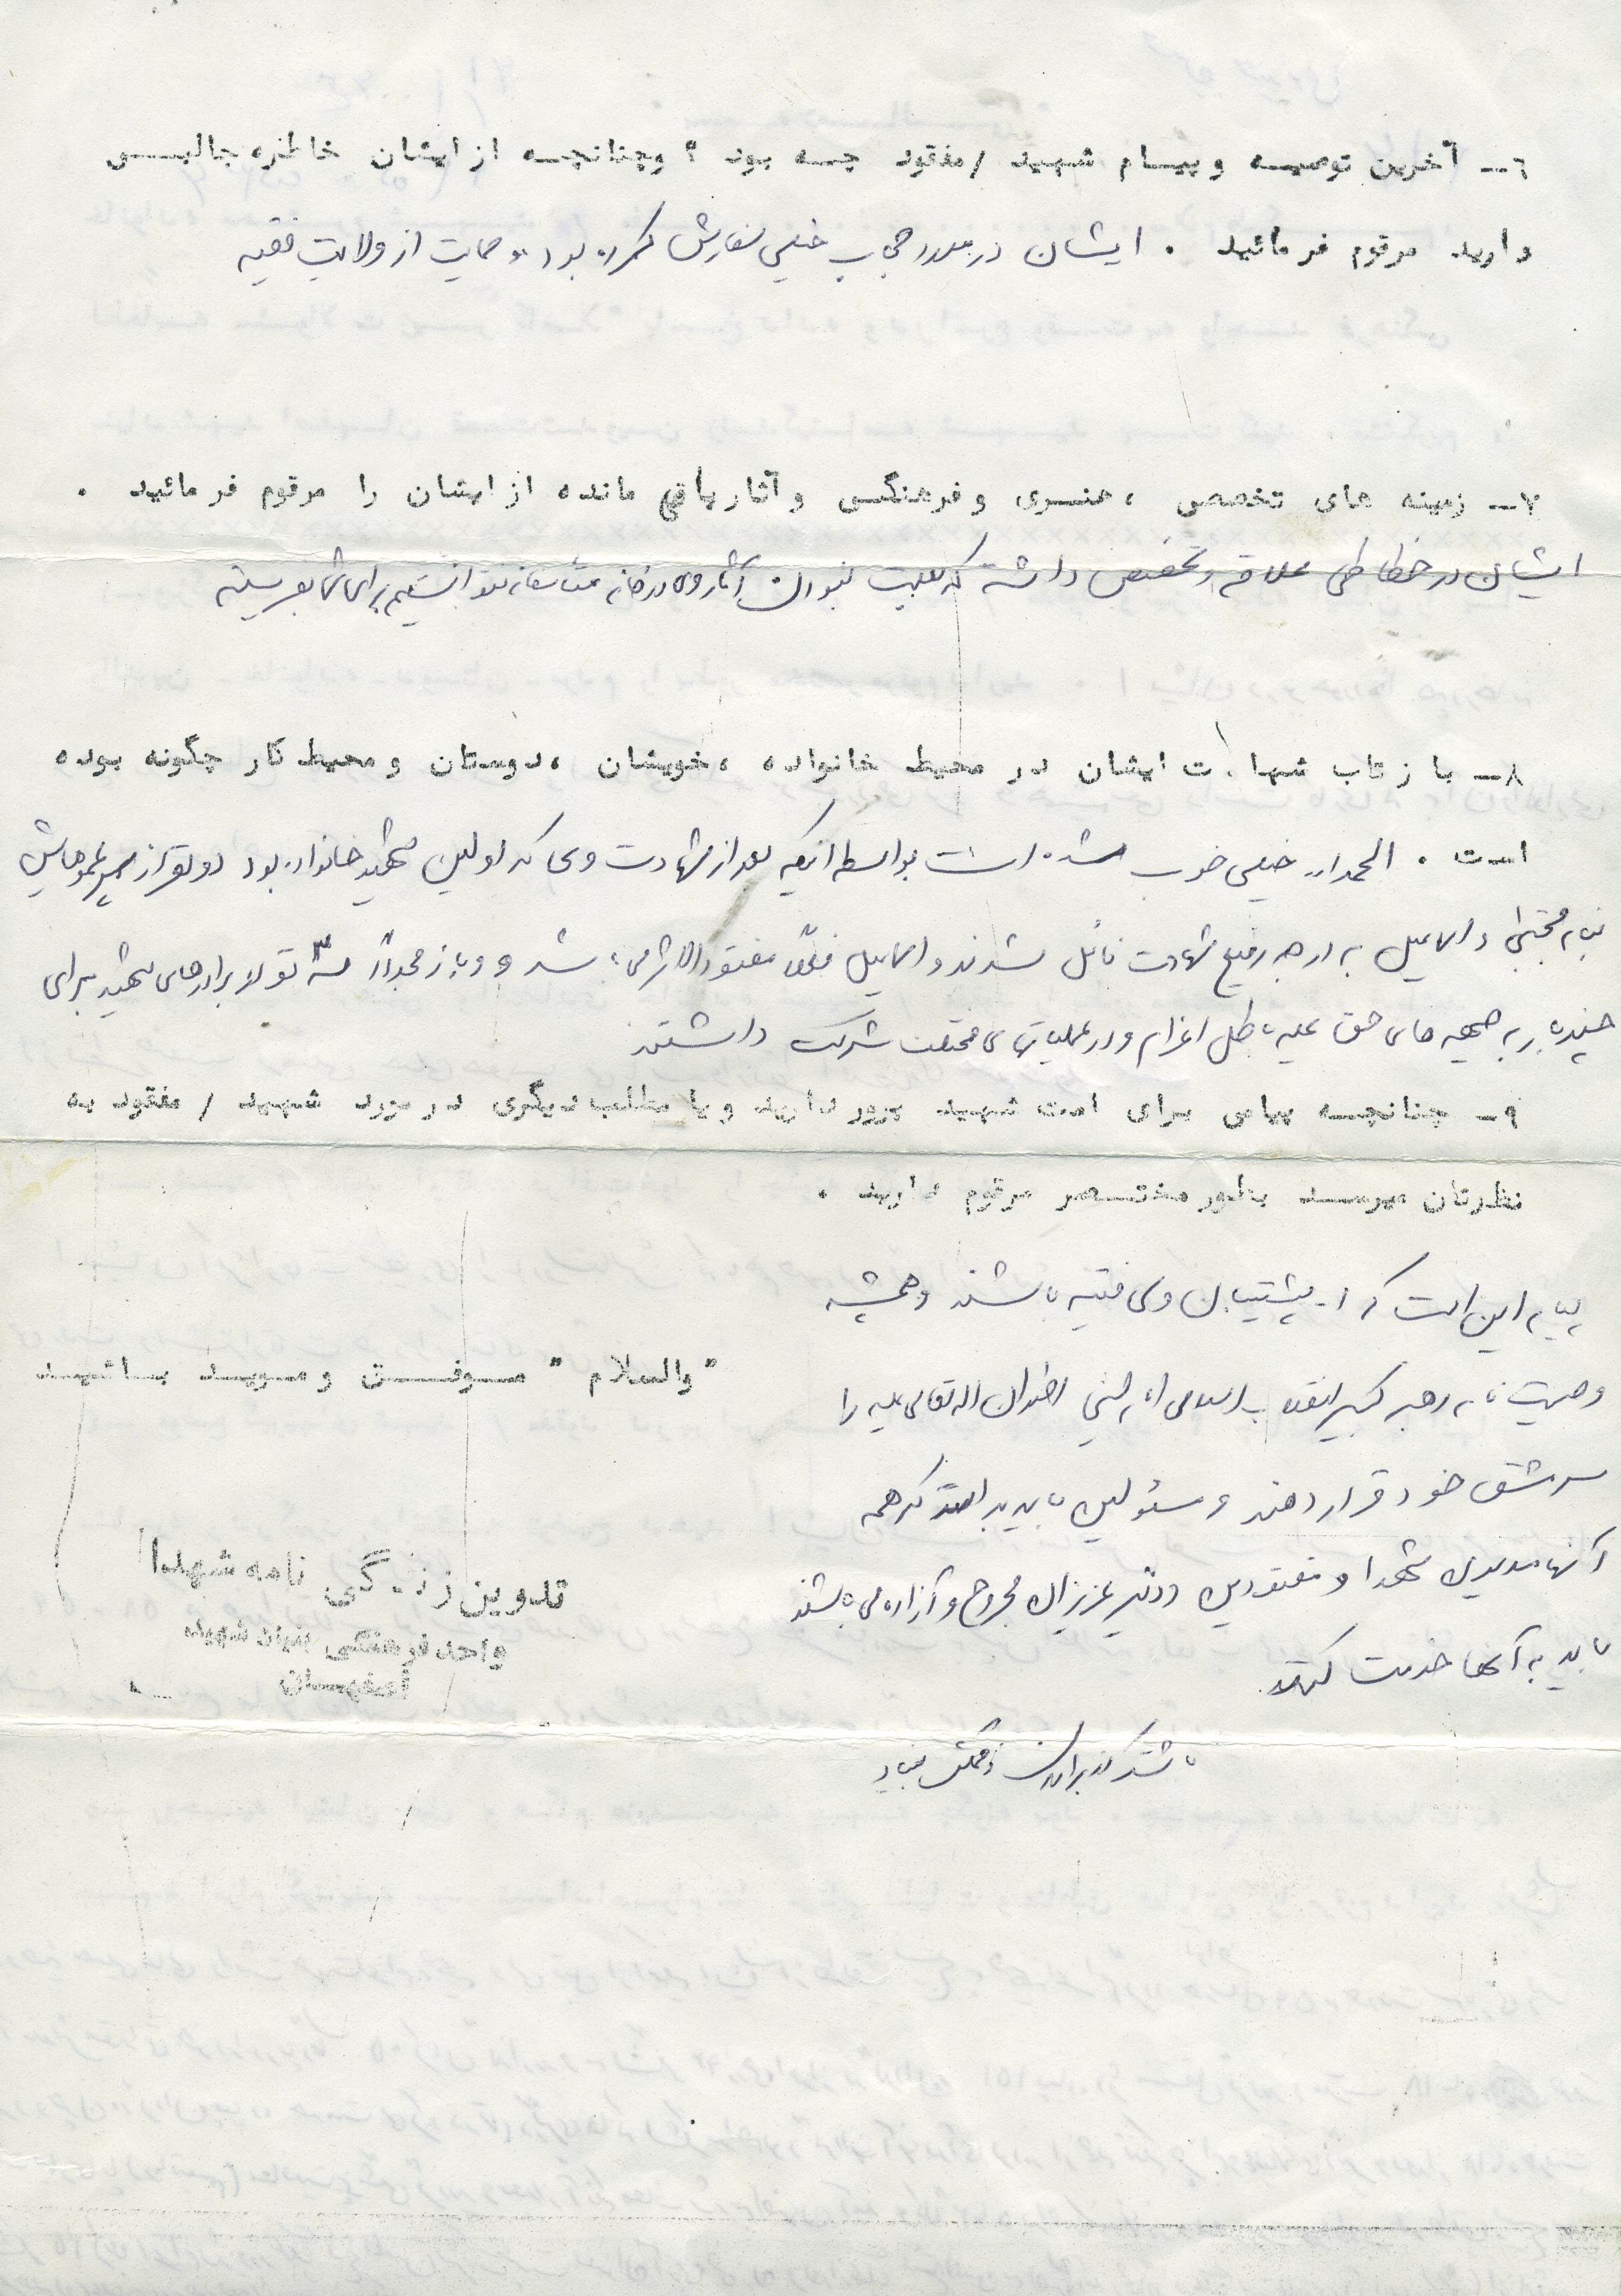 ۶ـ آخرین توصیه و پیام شهید / مفقود چه بود ؟ وچنانچه از ایشان خاطره جالبی
دارید مرقوم فرمائید . ایشان در مورد حجاب خیلی سفارش کرده بود و حمایت از ولایت فقیه
۷ـ زمینه های تخصصی ، هنری و فرهنگی و آثار باقی مانده از ایشان را مرقوم فرمائید .
ایشان در خطاطی علاقه و تخصص داشته که بعلت نبودن آثار وی در خانه متأسفانه نتوانستیم برای شما بفرستیم
۸ـ بازتاب شهادت ایشان در محیط خانواده ، خویشان ، دوستان و محیط کار چگونه بوده
است . الحمدالله خیلی خوب شده است بواسطه اینکه بعد از شهادت وی که اولین شهید خانواده بود دو نفر از پسر عموهایش
بنام مجتبی و اسماعیل به درجه رفیع شهادت نائل شدند و اسماعیل فعلاً مفقودالاثر می باشد و و باز مجدداً سه تو از برادرهای شهید برای
چندبار به جبهه های حق علیه باطل اعزام و در عملیاتهای مختلف شرکت داشتند
۹ـ چنانچه پیامی برای امت شهید پرور دارید و یا مطلب دیگری در مورد شهید / مفقود به
نظرتان میرسد بطور مختصر مرقوم دارید .
پیام این است که پشتیبان ولی فقیه باشند و همیشه
وصیت نامه رهبر کبیر انقلاب اسلامی امام خمینی رضوان اله تعالی علیه را
سرمشق خود قرار دهند و مسئولین باید بدانند که همه
آنها مدیون شهدا و مفقودین و دیگر عزیزان مجروح و آزاده می باشند
باید به آنها خدمت کنند
با تشکر از برادران زحمتکش بنیاد
" والسلام " موفق و موید باشید
تدوین زندگی نامه شهدا
واحد فرهنگی بنیاد شهید
اصفهان